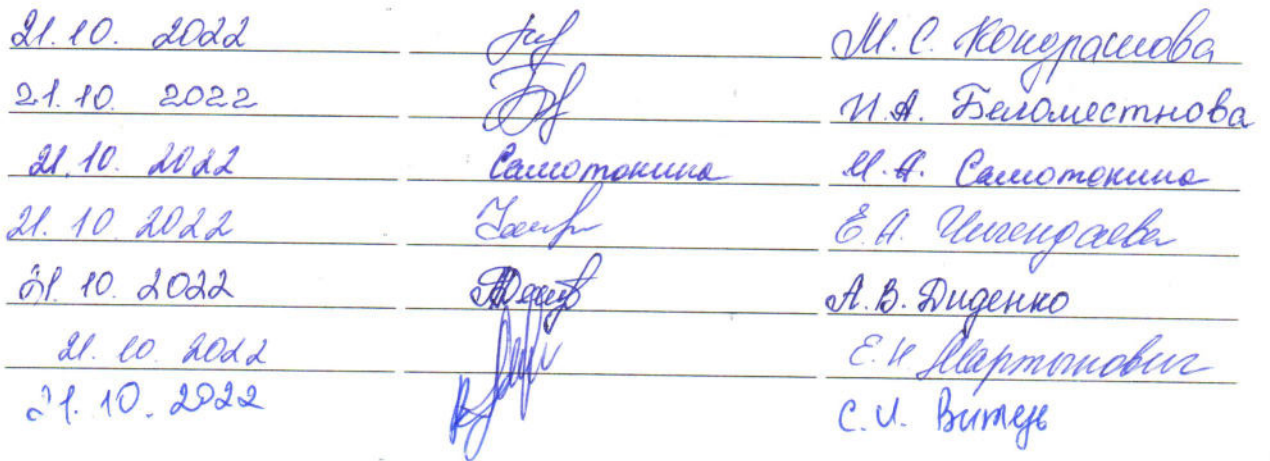 21.10. 2022 М.С. Кондрашова
21.10. 2022 И.А. Беломестнова
21.10. 2022 Самотокина М.А. Самотокина
21.10.2022 Е.А.
21.10.2022 А.В. Диденко
21.10.2022 Е.И. Мартынович
21.10.2022 С.И.